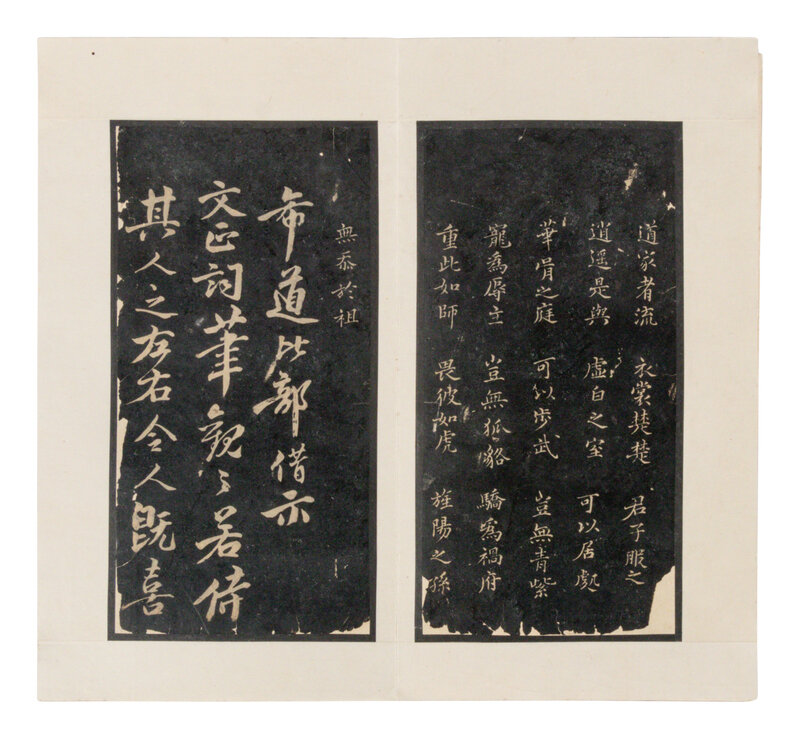 道家者流 衣裳楚楚 君子服之
逍遥是與 虛白之室 可以居處
華胥之庭 可以步武 豈無青紫
寵爲辱主 豈無狐貉 驕爲禍府
重此如師 畏彼如虎 旌陽之孫
無忝於祖
希道比部借示
文正詞筆觀之若侍
其人之左右令人既喜